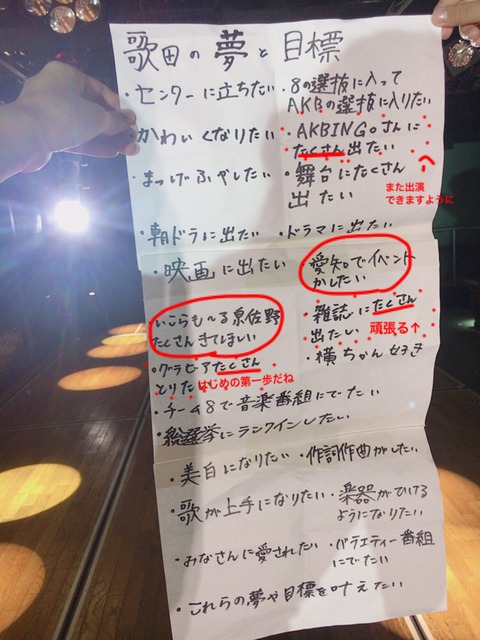 歌田の夢と目標
・センターに立ちたい
・8の選抜に入って
AKBの選抜に入りたい
・かわいくなりたい
・AKBINGOさんに
たくさん出たい
・まつげふやしたい
・舞台にたくさん
出たい
また出演
できますように
・朝ドラに出たい
・ドラマに出たい
・映画に出たい
愛知でイベント
がしたい
いこらも〜る泉佐野
たくさんきてほしい
・雑誌にたくさん
出たい
頑張る↑
・グラビアたくさん
とりた
はじめの第一歩だね
・横ちゃん好き
・チーム8で音楽番組にでたい
・総選挙にランクインしたい
・美白になりたい
・作詞作曲がしたい
・歌が上手になりたい
・楽器がひける
ようになりたい
・みなさんに愛されたい
・バラエティー番組
にでたい
・これらの夢や目標を叶えたい